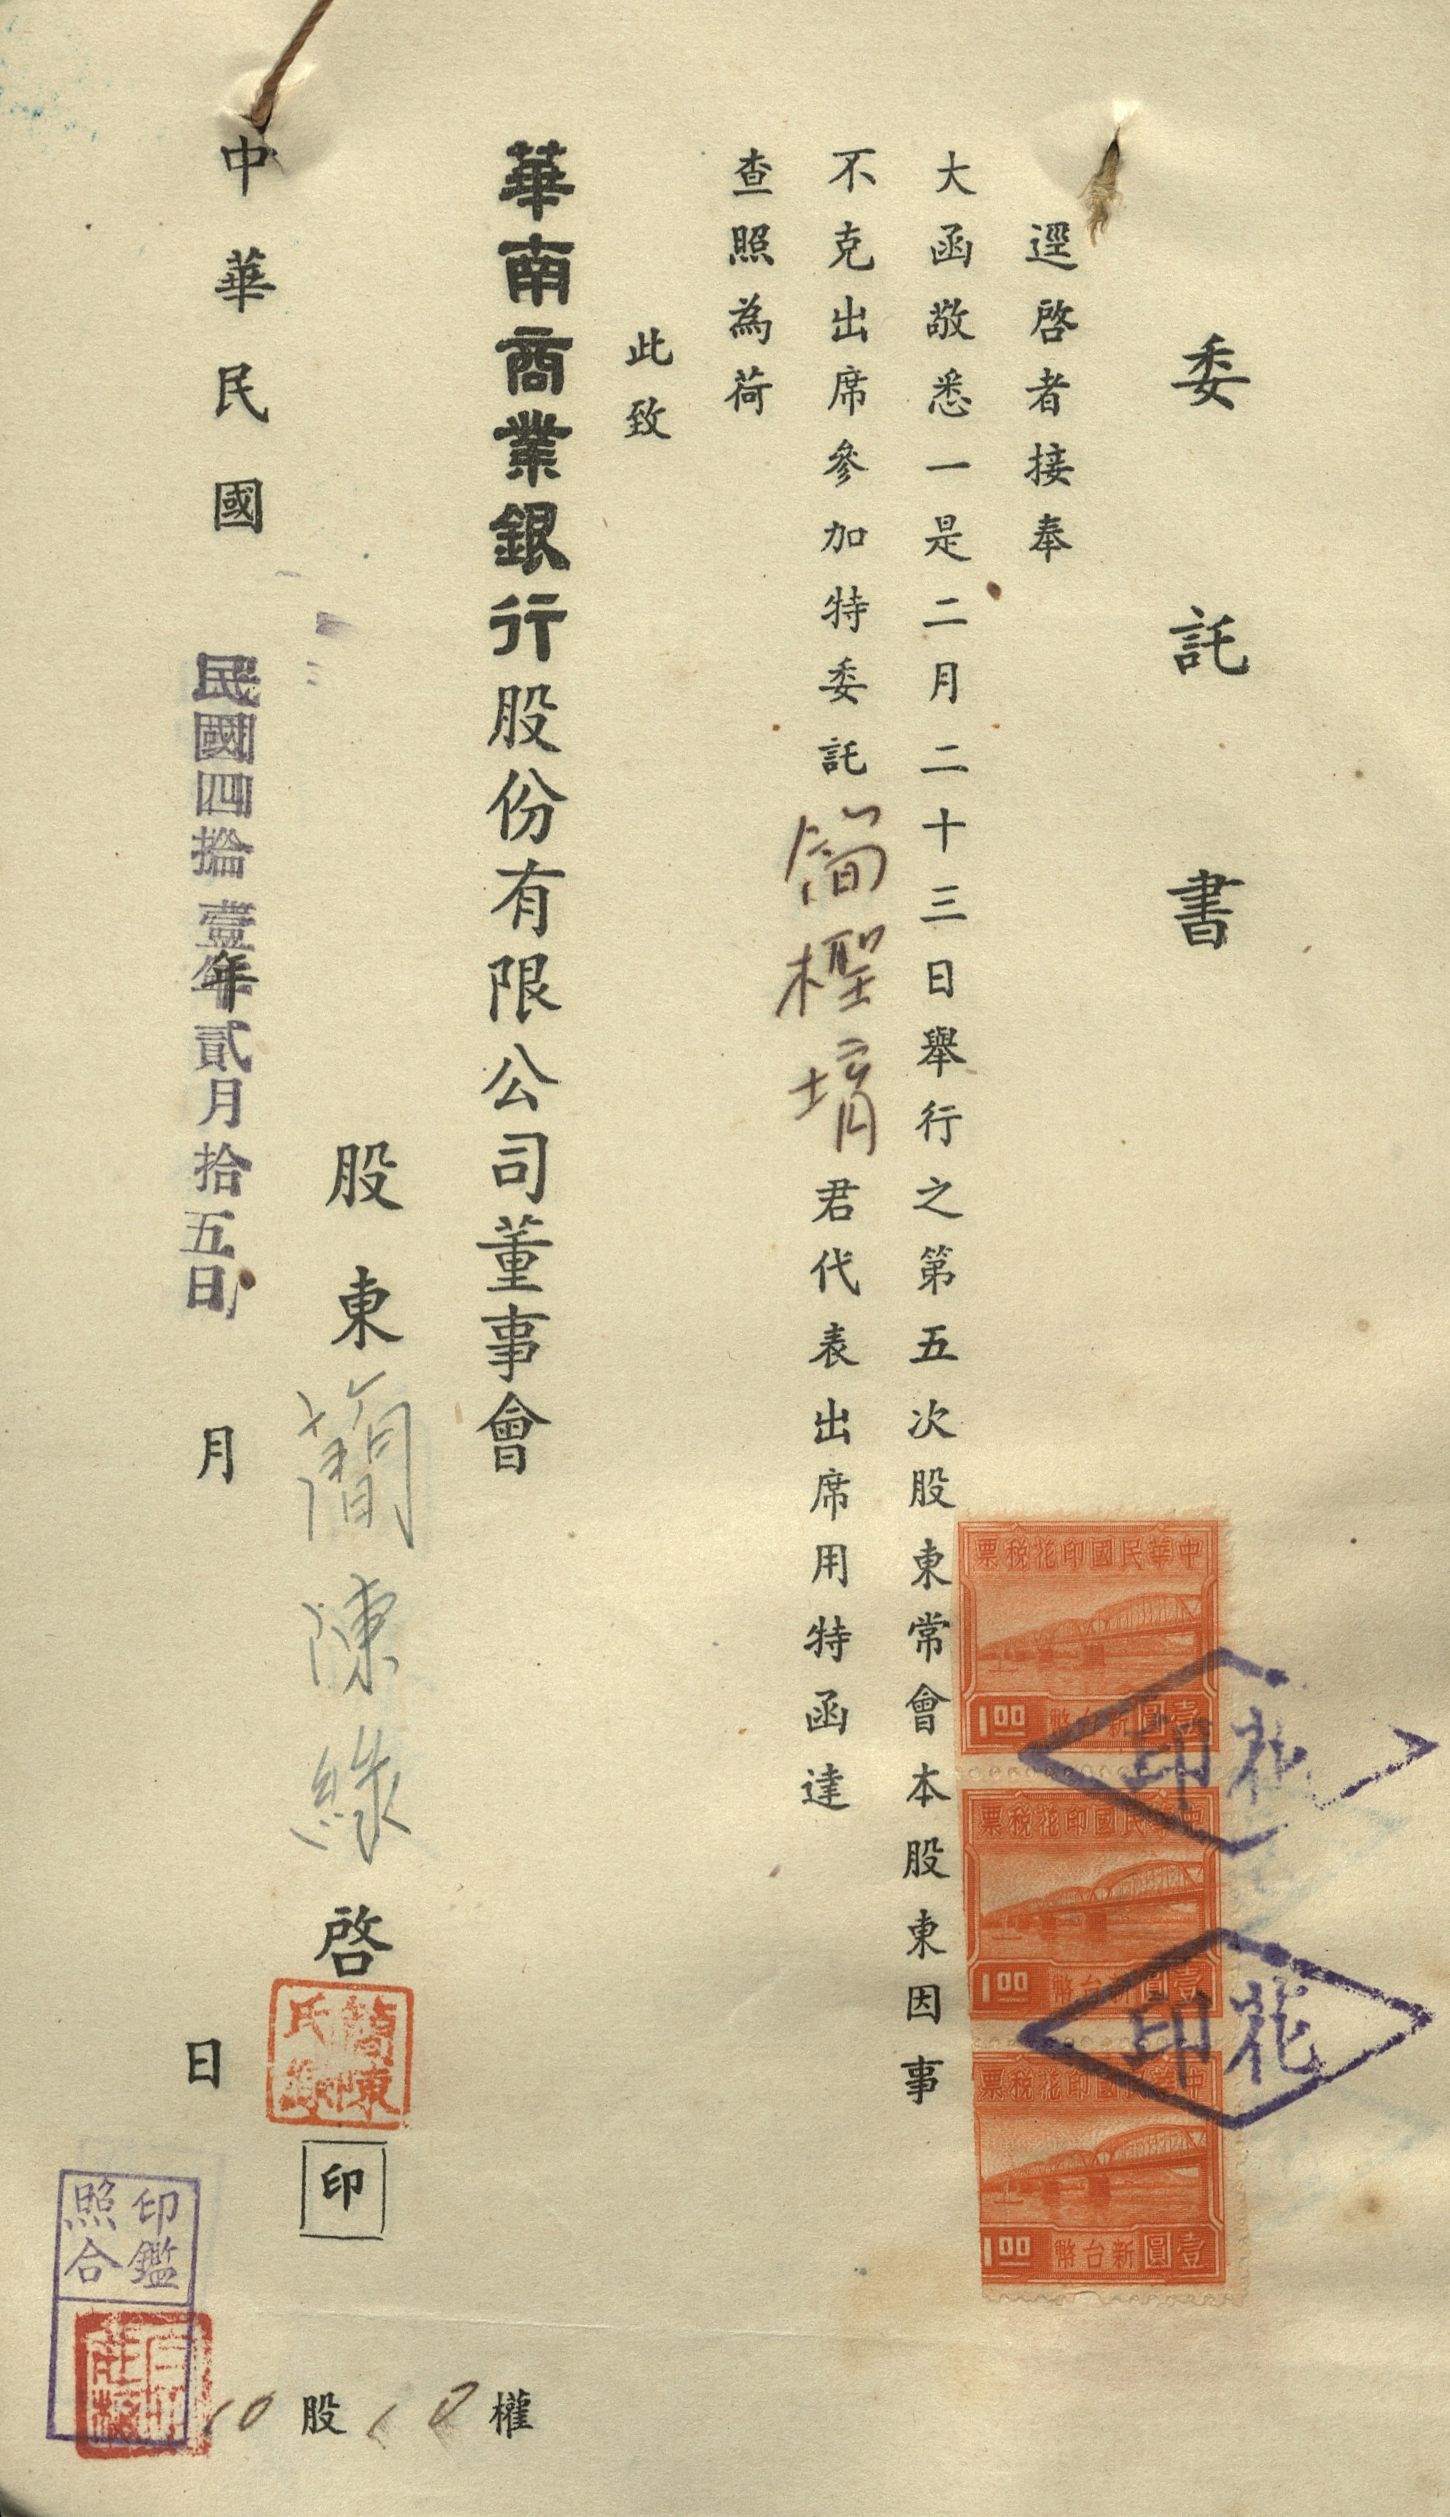 委託書
逕啓者接奉
大函敬悉一是二月二十三日舉行之第五次股東常會本股東因事
不克出席參加特委託簡檉堉君代表出席用特函達
查照為荷
此致
華南商業銀行股份有限公司董事會
股東簡陳綠啓
印
中華民國 年 月 日
民國四拾壹年貳月拾五日
10股10權
中華民國印花稅票
壹圓新台幣
1.00
中華民國印花稅票
壹圓新台幣
1.00
中華民國印花稅票
壹圓新台幣
1.00
花印
花印
簡陳氏綠
印鑑
照合